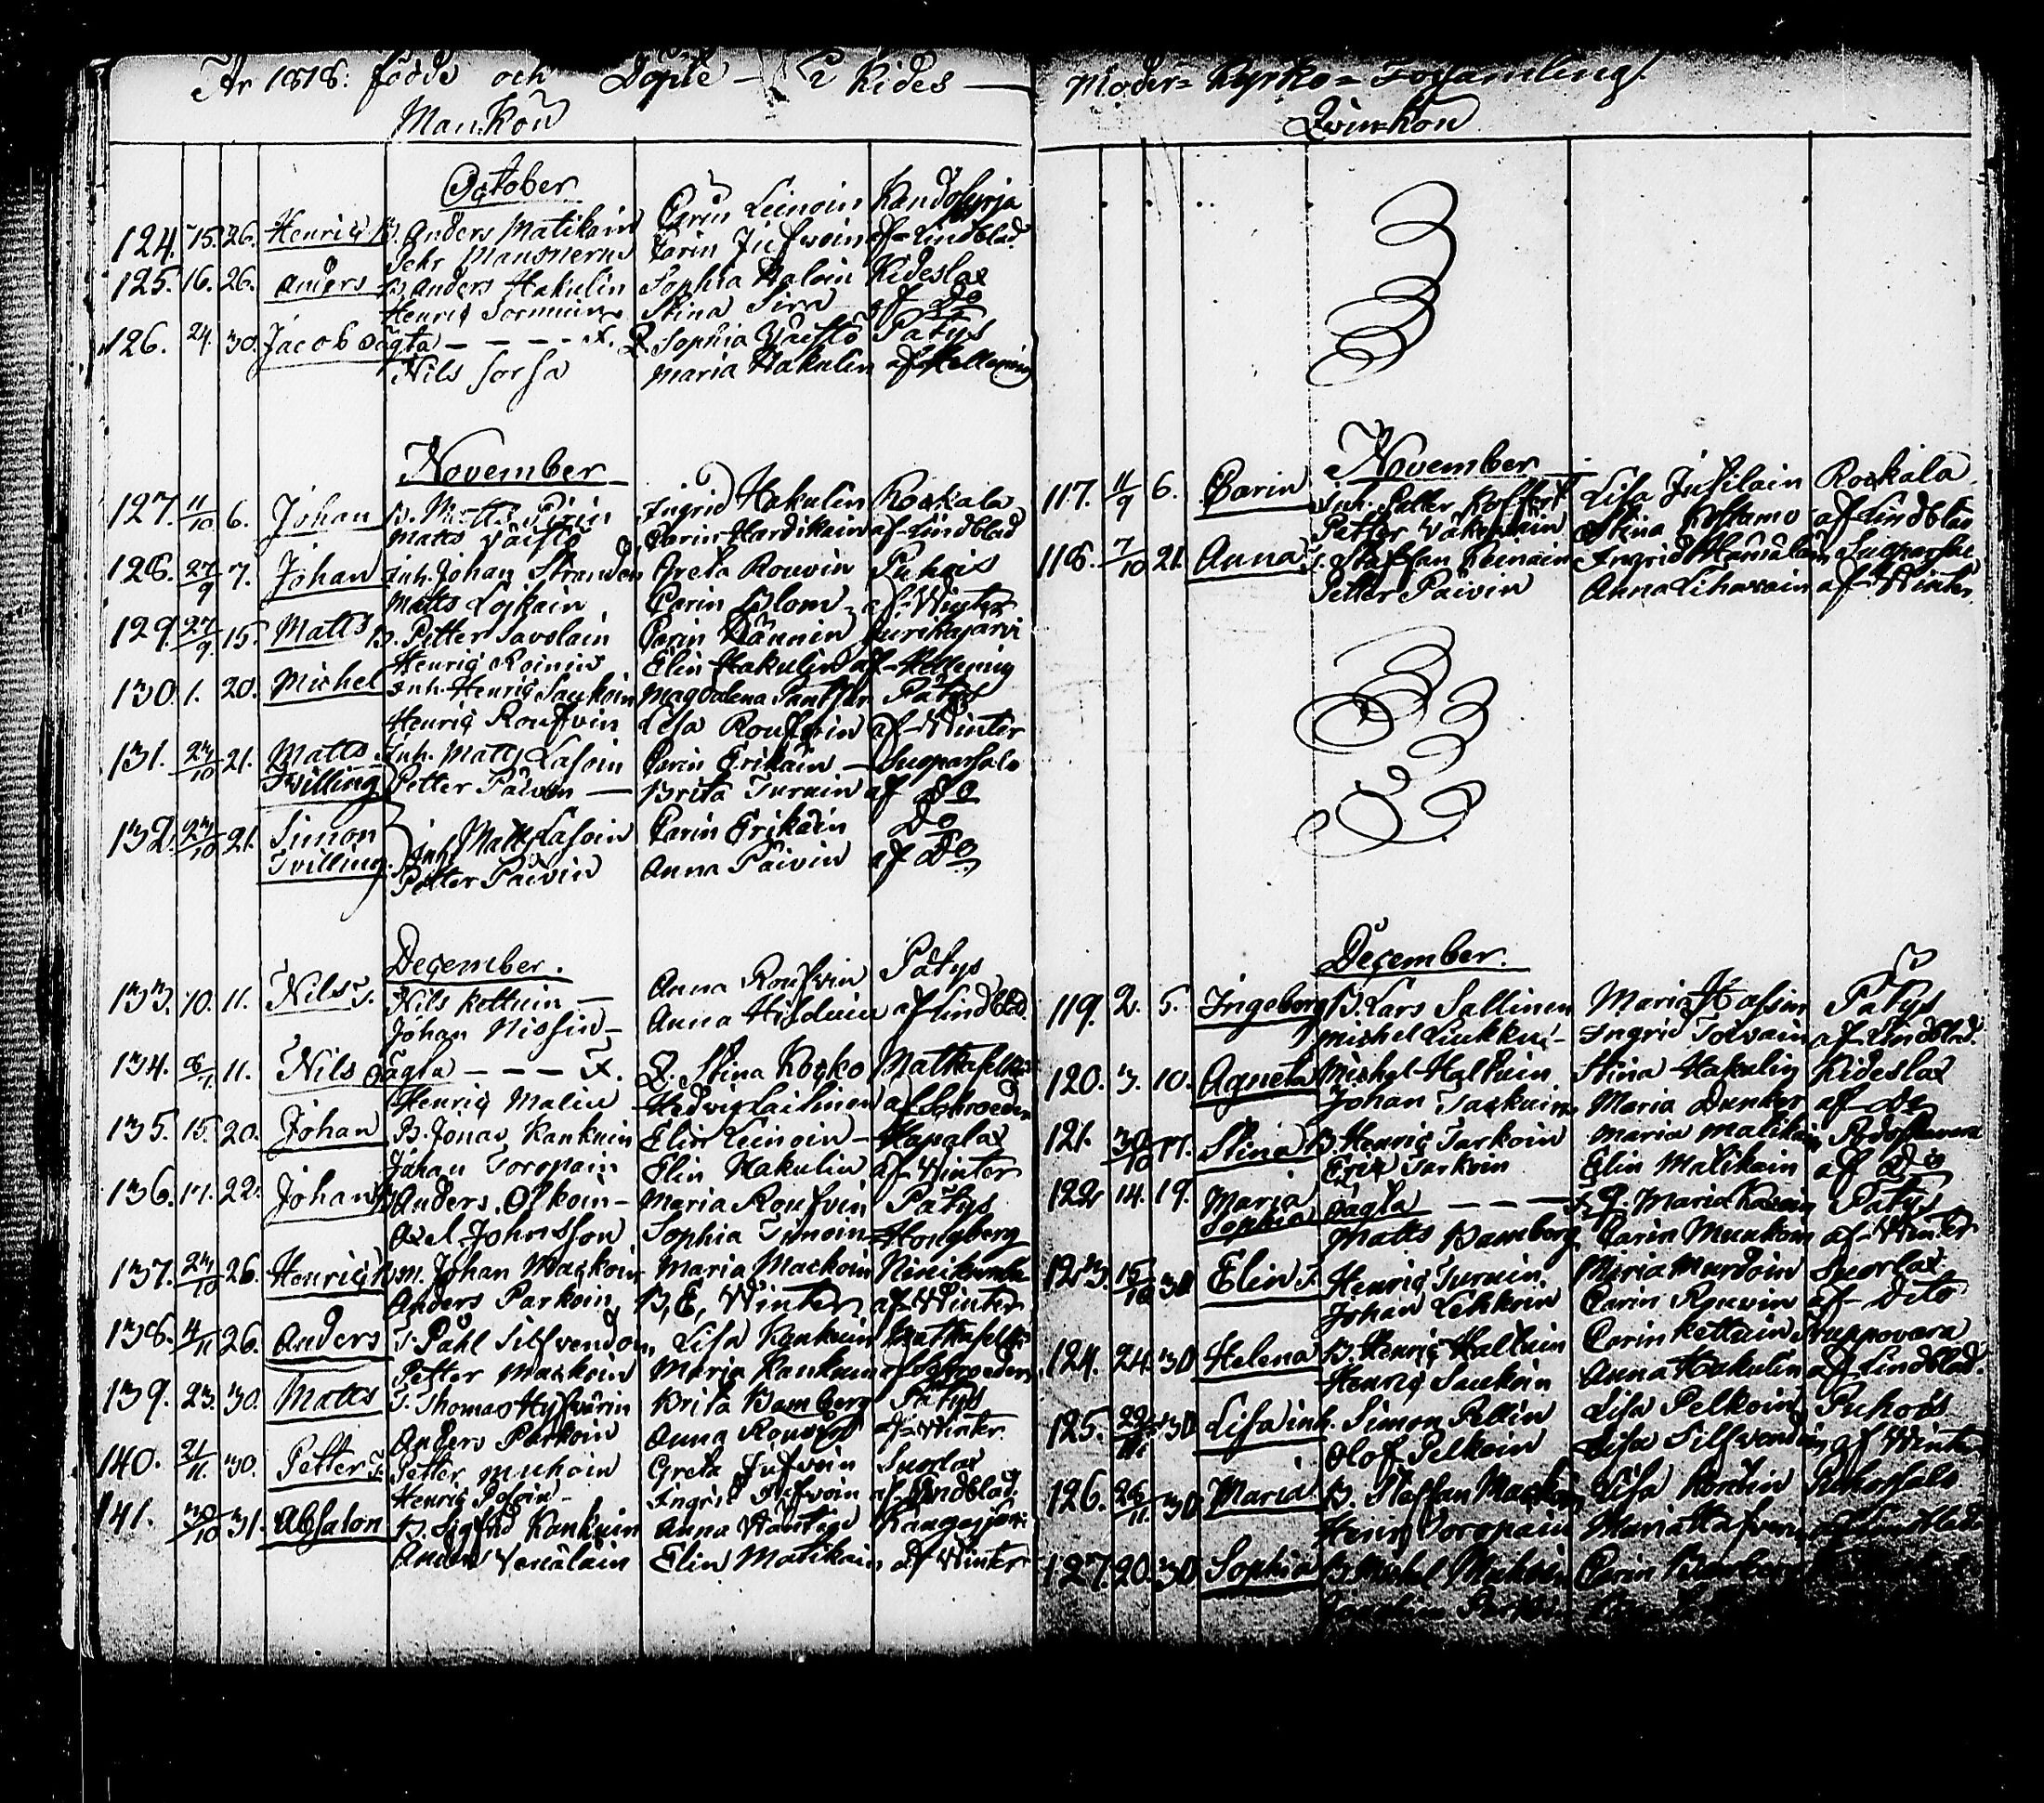 År 1818: födde och Döpte i Kides Moder= Kyrko= Församling.
Mankön
October
Carin Leinoin Kandosyrja
124. 15. 26. Henric B. Anders Matikain Carin Jufvoin af Lindblad
125. 16. 26. Anders B. Anders Hakulin Sophia Haloin Kideslax
Henric Sormuin Stina Sirn af Do
126. 24. 30. Jacob oägta - - - - x. Q. Sophia Väistö Pätys
Nils Sorsa Maria Hakulin af Helleming
November
127. 11/10 6. Johan B. Matts Ingrid Hakulin Roxkala
Matts Väistö Carin Hardikain af Lindblad
128. 27/9 7. Johan Inh. Johan Stranden Greta Rouvin Puhois
Matts Loikain Carin Blom af Winter
129. 27/9. 15. Matts B. Petter Savolain Carin Jurikajärvi
Henric Roinin Elin Hakulin af Helleming
130. 1. 20. Michel Inh. Henric Saukoin Magdalena Pätys
Henric Roufvin Lisa Roufvin af Winter
131. 23/10 21. Matts Inh. Matts Lasoin Carin Erikäin Suoparsalo
Tvilling Petter Päivin Brita Turuin af Do
132. 23/10 21. Simon Inh. Matts Lasoin Carin Erikäin Do
Tvilling Petter Päivin Anna Päivin af Do
December.
133. 10. 11. Nils T. Nils Kettuin Anna Roufvin Pätys
Johan Nissin Anna Hilduin af Lindblad.
134. 6/11 11. Nils oägta - - - x. Q. Stina Kocko Matkaselkä
Henric Malin Hedwig Laitinen af Schroeder
135. 15. 20. Johan B. Jonas Kankuin Elin Leinoin Hapalax
Johan Toropain Elin Hakulin af Winter
136. 17. 22. Johan B. Anders Olkoin Maria Roufvin Pätys
Axel Johnsson Sophia Timoin Hougberg
137. 24/10 26. Henric Bm. Johan Mackoin Maria Mackoin Niinikumbu
Anders Parkoin B, E, Winter af Winter
138. 4/11 26. Anders T. Påhl Silfvendoin Lisa Kankuin Matkaselkä
Petter Mackoin Maria Kankuin af Schroeder
139. 23. 30. Matts T. Thomas Hyfvärin Brita Bamberg Pätys
Anders Parkoin Anna af Winter
140. 21/11. 30. Petter T. Petter Muhoin Greta Jufvoin Suorlax
Henric Ingrid Jufvoin af Lindblad.
141. 30/10 31. Absalon B. Sigfrid Kankuin Anna Kangasjärvi
Anders Venäläin Elin Matikain af Winter
Qvinkön
November
117. 11/9 6. Carin Inh. Petter Lisa Jusilain Roxkala
Petter Väkeväin Stina Kostamo af Lindblad
118. 7/10 21. Anna T. Staffan Reinäin Ingrid Hämäläin Suoparsal
Petter Päivin Anna Lihavain af Winter
December.
119. 2. 5. Ingeborg B. Lars Sallinen Maria Hassin Pätys
Michel Liukkui Ingrid Toivain af Lindblad.
120. 3. 10. Agneta Michel Haltuin Stina Hakulin Kideslax
Johan Taskuin Maria Dunker af Do
121. 30/10 17. Stina B. Henric Tarkoin Maria Matikain
Eric Tarkoin Elin Matikain af Do
122 14. 19. Maria oägta - - - x Q. Maria Pätys
Sophia Matts Bamberg Carin Muukoin af Winter
123. 15/10 30 Elin T. Henric Turuin Maria Murdoin Suorlax
Johan Lehkoin Carin Rouvin af Dito
124. 24. 30 Helena B. Henric Haltuin Carin Kettuin Ruppovara
Henric Saukoin Anna Hakulin af Lindblad.
125. 22/11. 30 Lisa inh. Simon Pellin Lisa Pelkoin Puhois
Olof Pelkoin Lisa Silfvendoin af Winter
126. 26/11. 30 Maria B. Staffan Mackoin Lisa
Henric Toropain af Lindblad
127. 20. 30 Sophia B. Michel Carin